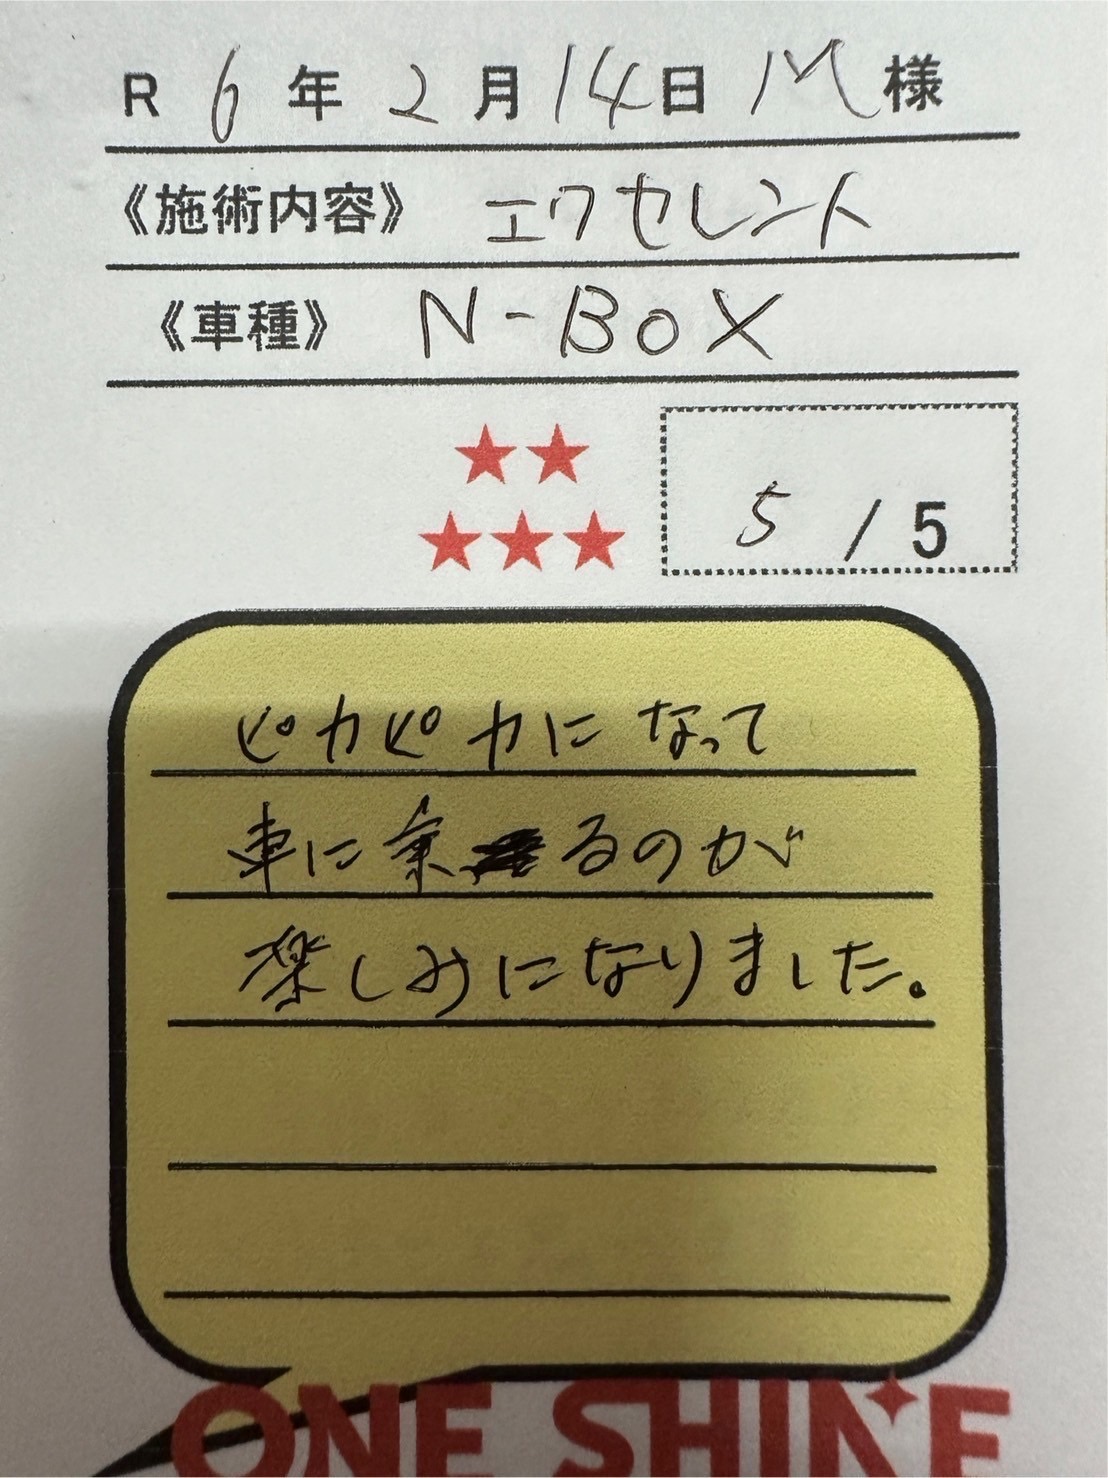 R 6年 2月14日 M様
《施術内容》 エクセレント
《車種》 N-BOX
5/5
ピカピカになって
車に乗るのが
楽しみになりました。
ONE SHINE